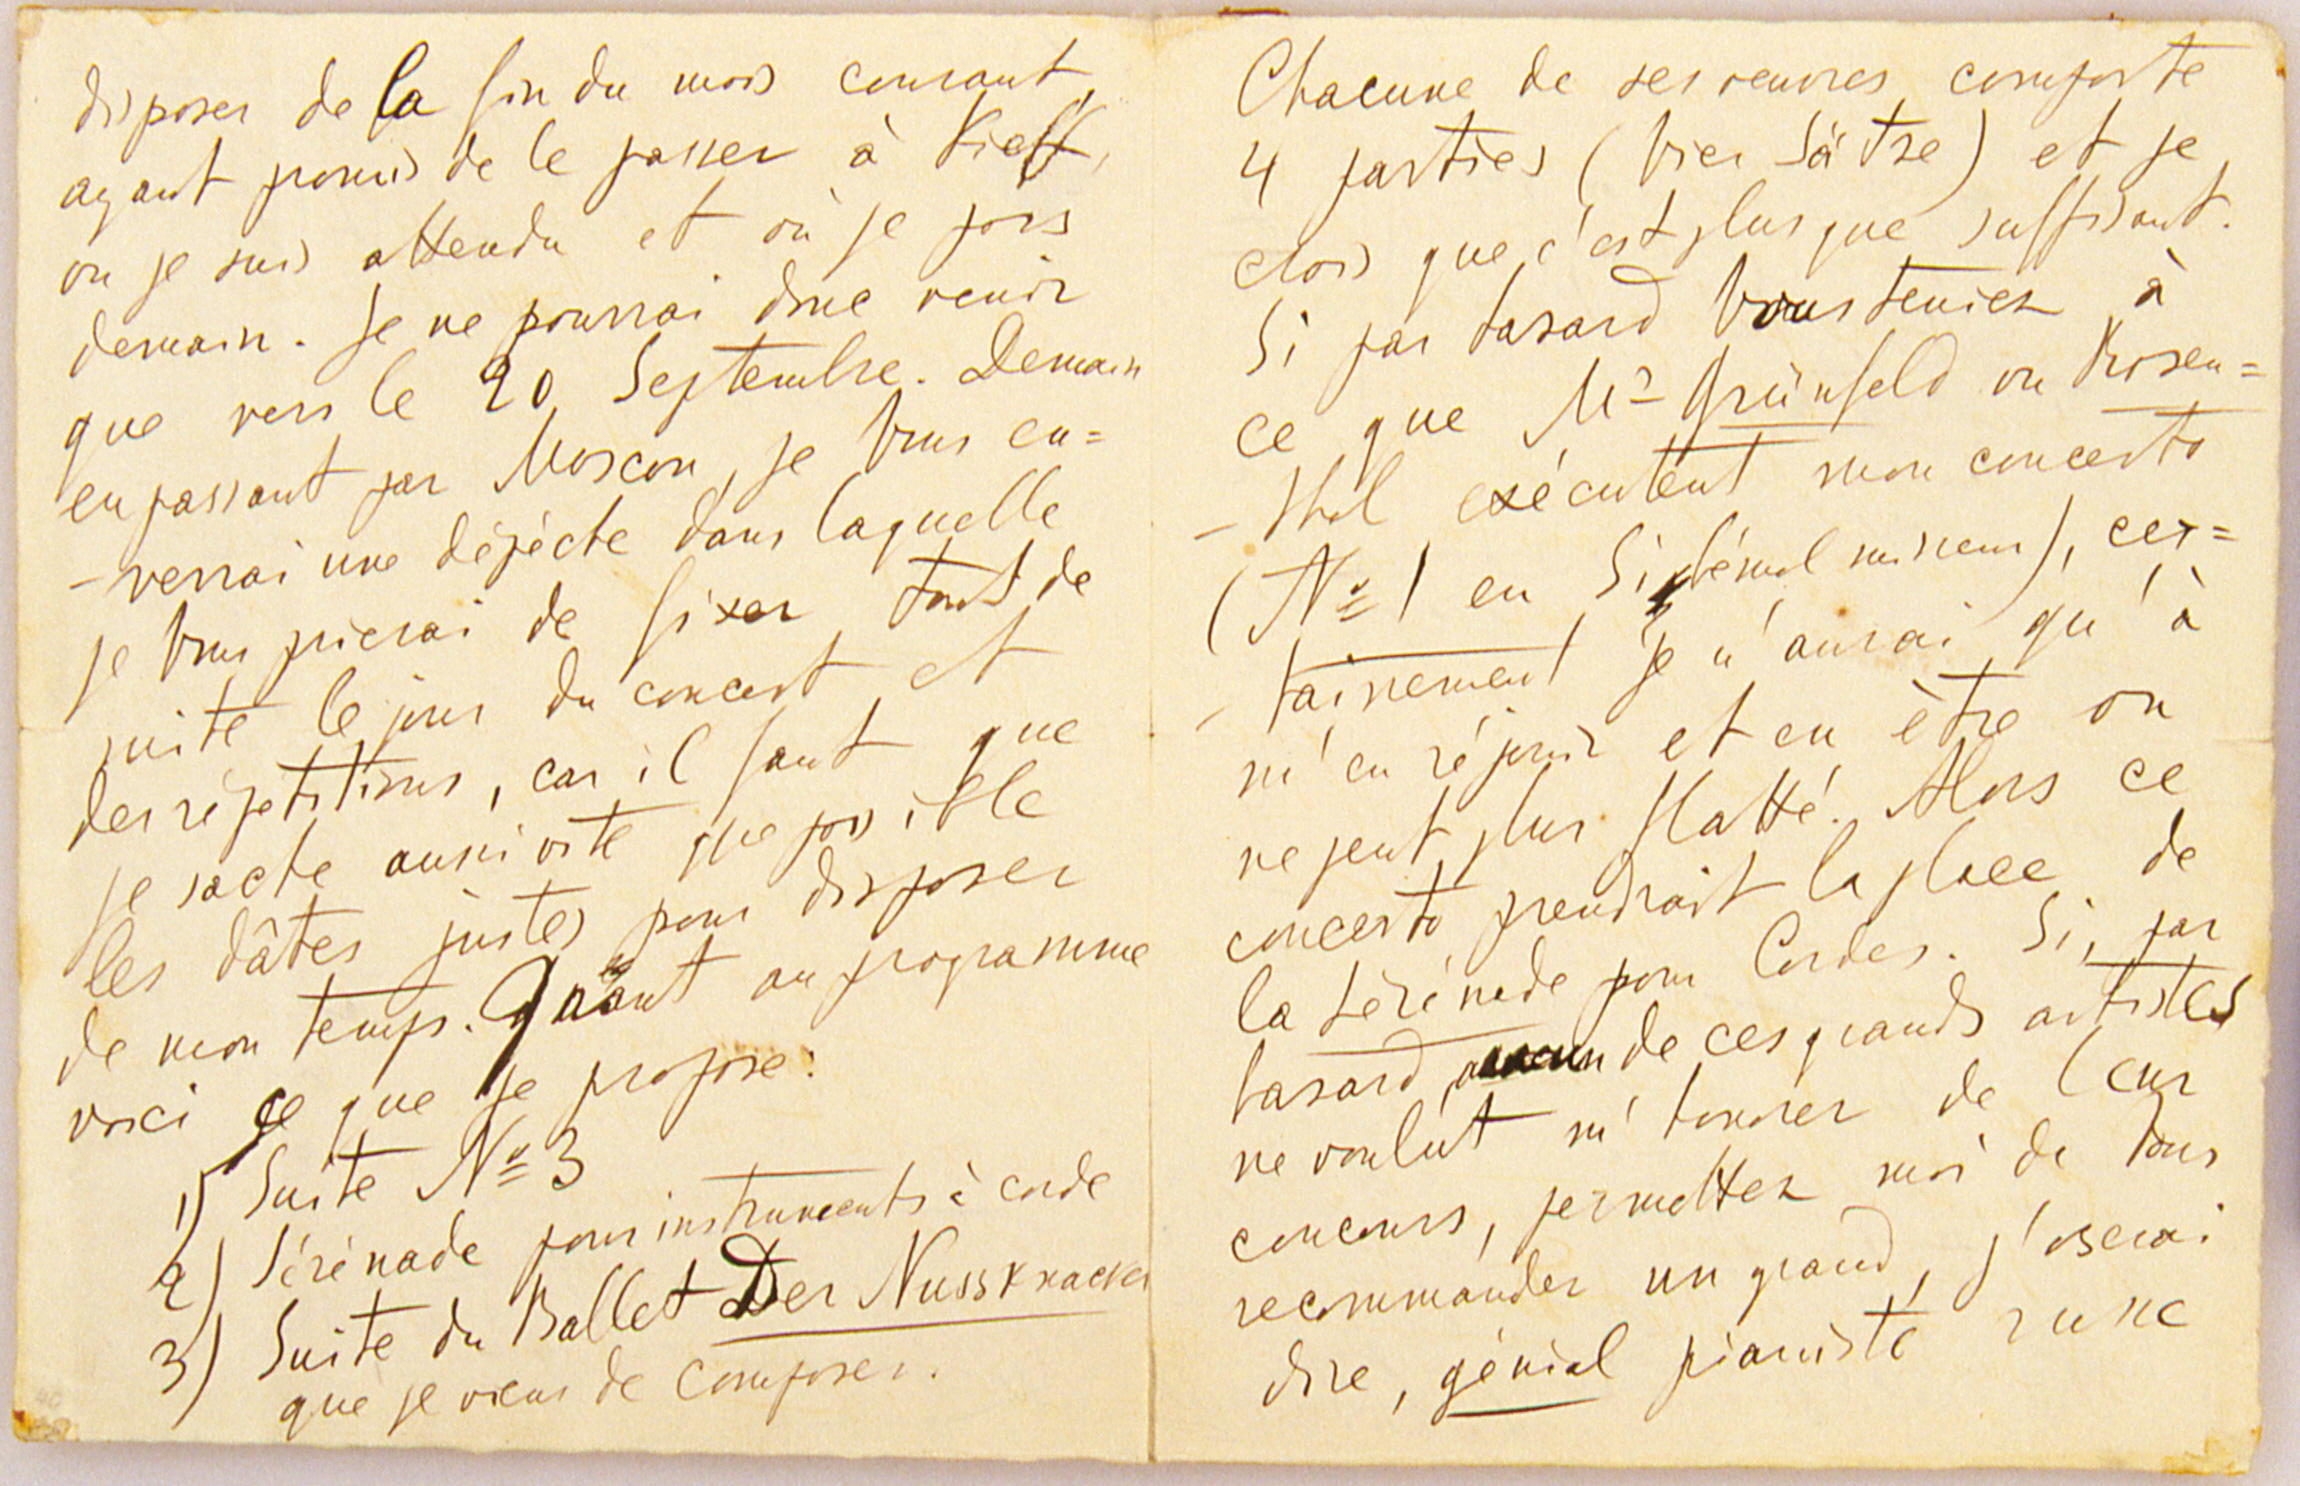 disposer de la fin du mois courant,
ayant promis de le passer à Kieff,
ou je suis attendu et où je pars
demain. Je ne pourrai donc venir
que vers le 20 Septembre. Demain
en passant par Moscou, je Vous en=
-verrai une dépêche dans laquelle
je Vous prierai de fixer tout de
suite le jour du concert et
des répetitions, car il faut que
je sache aussi vite que possible
les dâtes justes pour disposer
de mon temps. Quant au programme
voici ce que je propose:
1) Suite № 3
2) Sérénade pour instruments à corde
3) Suite du Ballet Der Nussknacker
que je viens de composer.
Chacune de ses oeuvres comporte
4 parties (Vier Sätze) et je
crois que c'est plus que suffisant.
Si par hasard Vous teniez à
ce que Mr Grünfeld ou Rosen=
-thal exécutent mon concerto
(№ 1 en Si bémol mineur), cer=
-tainement je n'aurai qu'à
m'en réjouir et en être on
ne peut plus flatté. Alors ce
concerto prendrait la place de
la Sérénade pour Cordes. Si, par
hasard, aucun de ces grands artistes
ne voulût m'honorer de leur
concours, permettez moi de Vous
recommander un grand, j'oserai
dire, génial pianiste russe